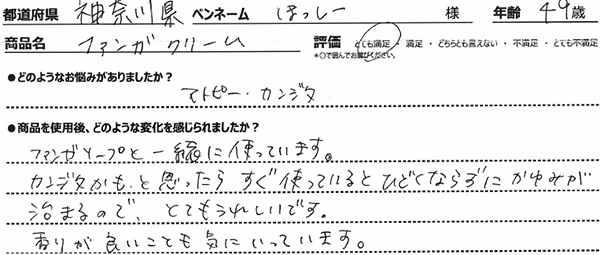 都道府県 神奈川県 ペンネーム ほっしー 様 年齢 49歳
商品名 ファンガクリーム 評価 とても満足・満足・どちらとも言えない・不満足・とても不満足
*○で囲んでお選びください。
●どのようなお悩みがありましたか?
アトピー・カンジタ
●商品を使用後、どのような変化を感じられましたか?
ファンガソープと一緒に使っています。
カンジタかも、と思ったらすぐ使っているとひどくならずにかゆみが
治まるので、とてもうれしいです。
香りが良いことも気にいっています。